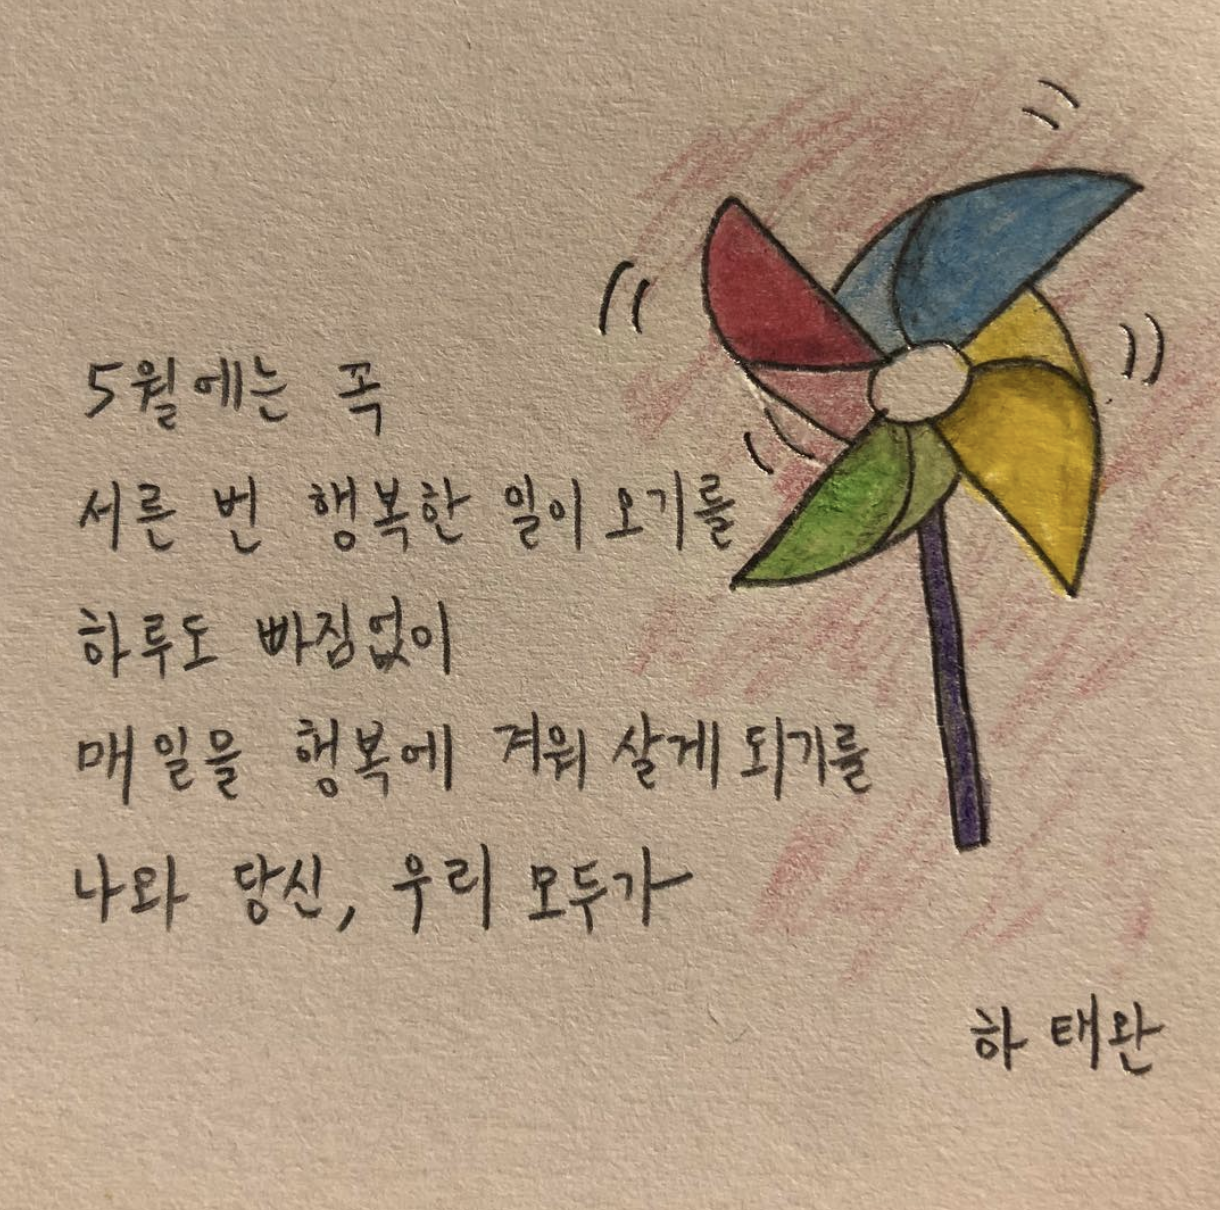 5월에는 꼭
서른 번 행복한 일이 오기를
하루도 빠짐없이
매일을 행복에 겨워 살게 되기를
나와 당신, 우리 모두가
하 태완